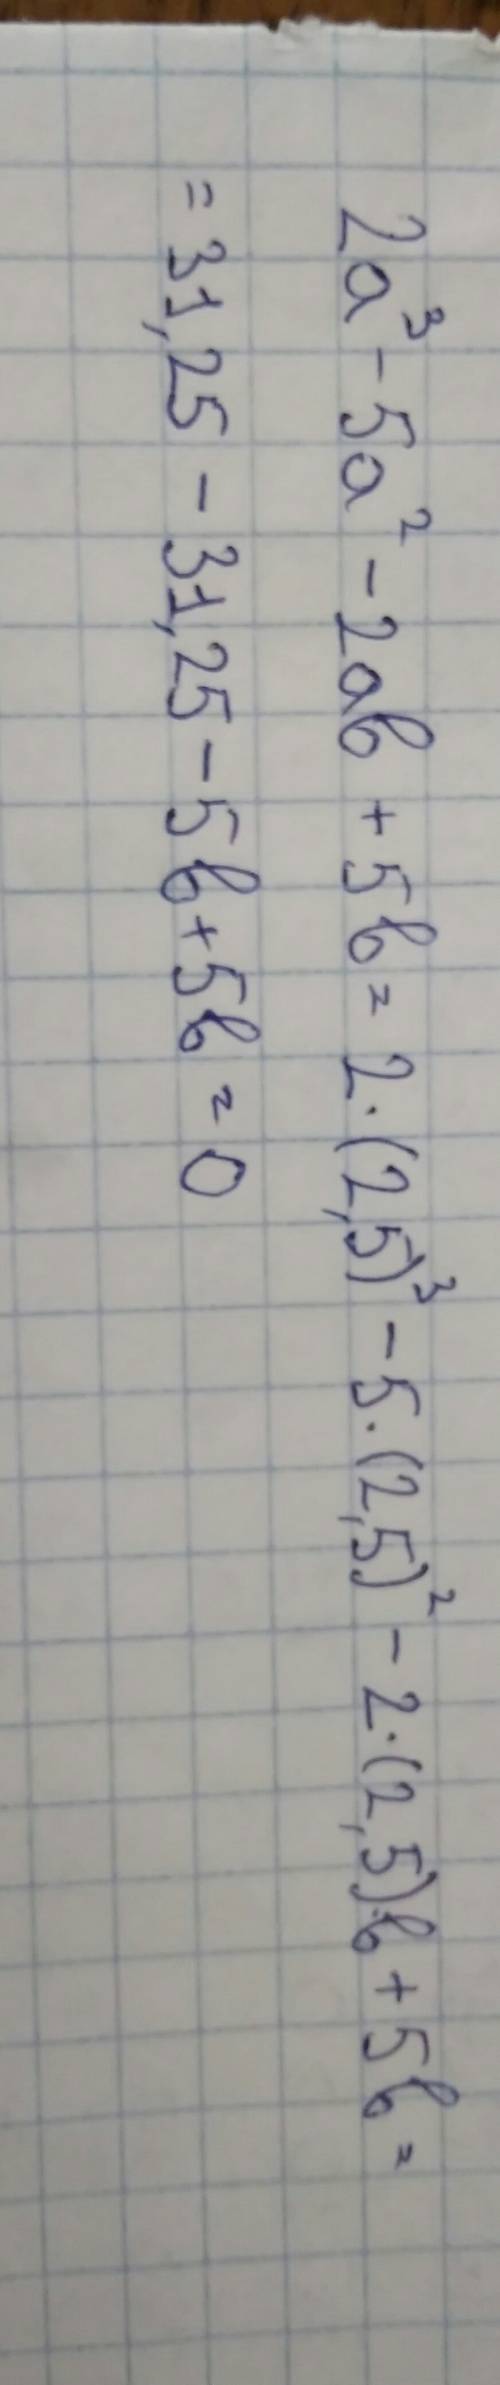 2a³ - 5a² - 2ab + 5b = 2·(2,5)³ - 5·(2,5)² - 2·(2,5)b + 5b =
= 31,25 - 31,25 - 5b + 5b = 0